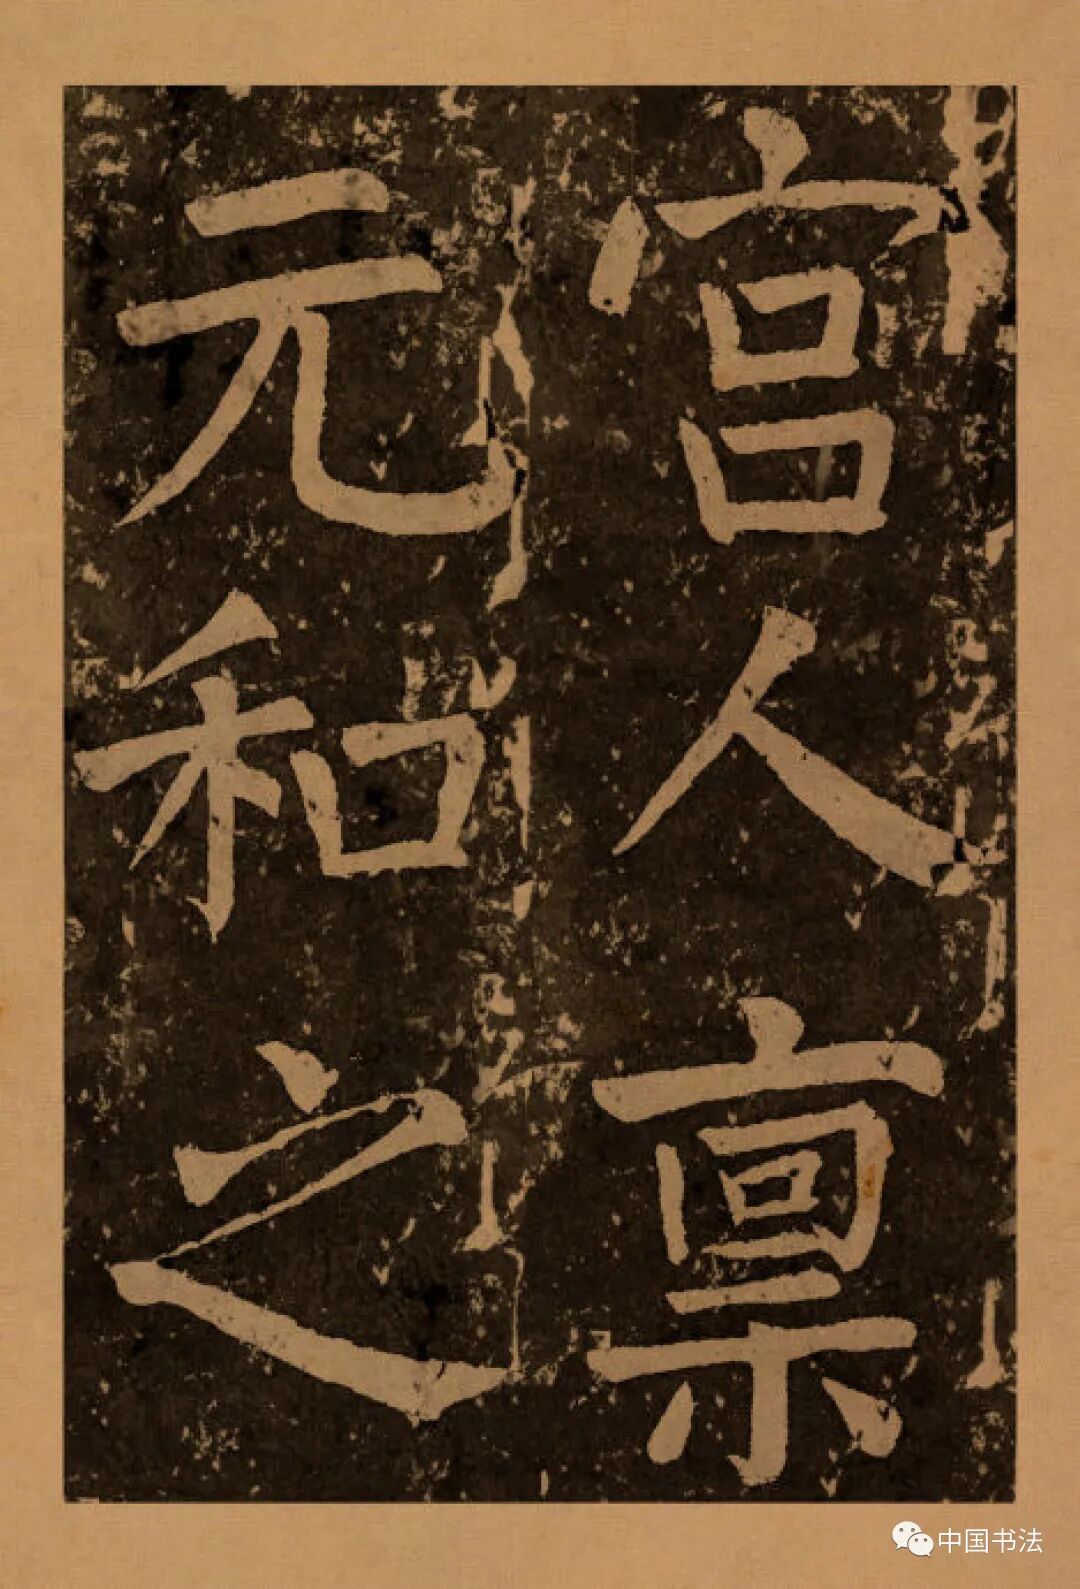 宫人禀
元和之
中国书法